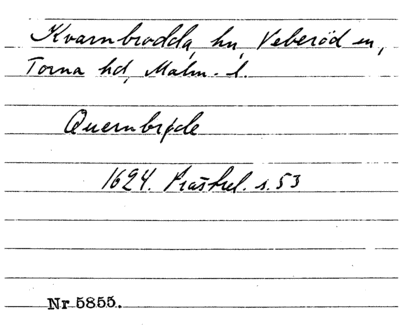 Kvarnbrodda, hn, Veberöd sn,
Torna hd, Malm. l.
Quernbrøde
1624. Prästrel. s. 53
Nr 5855.